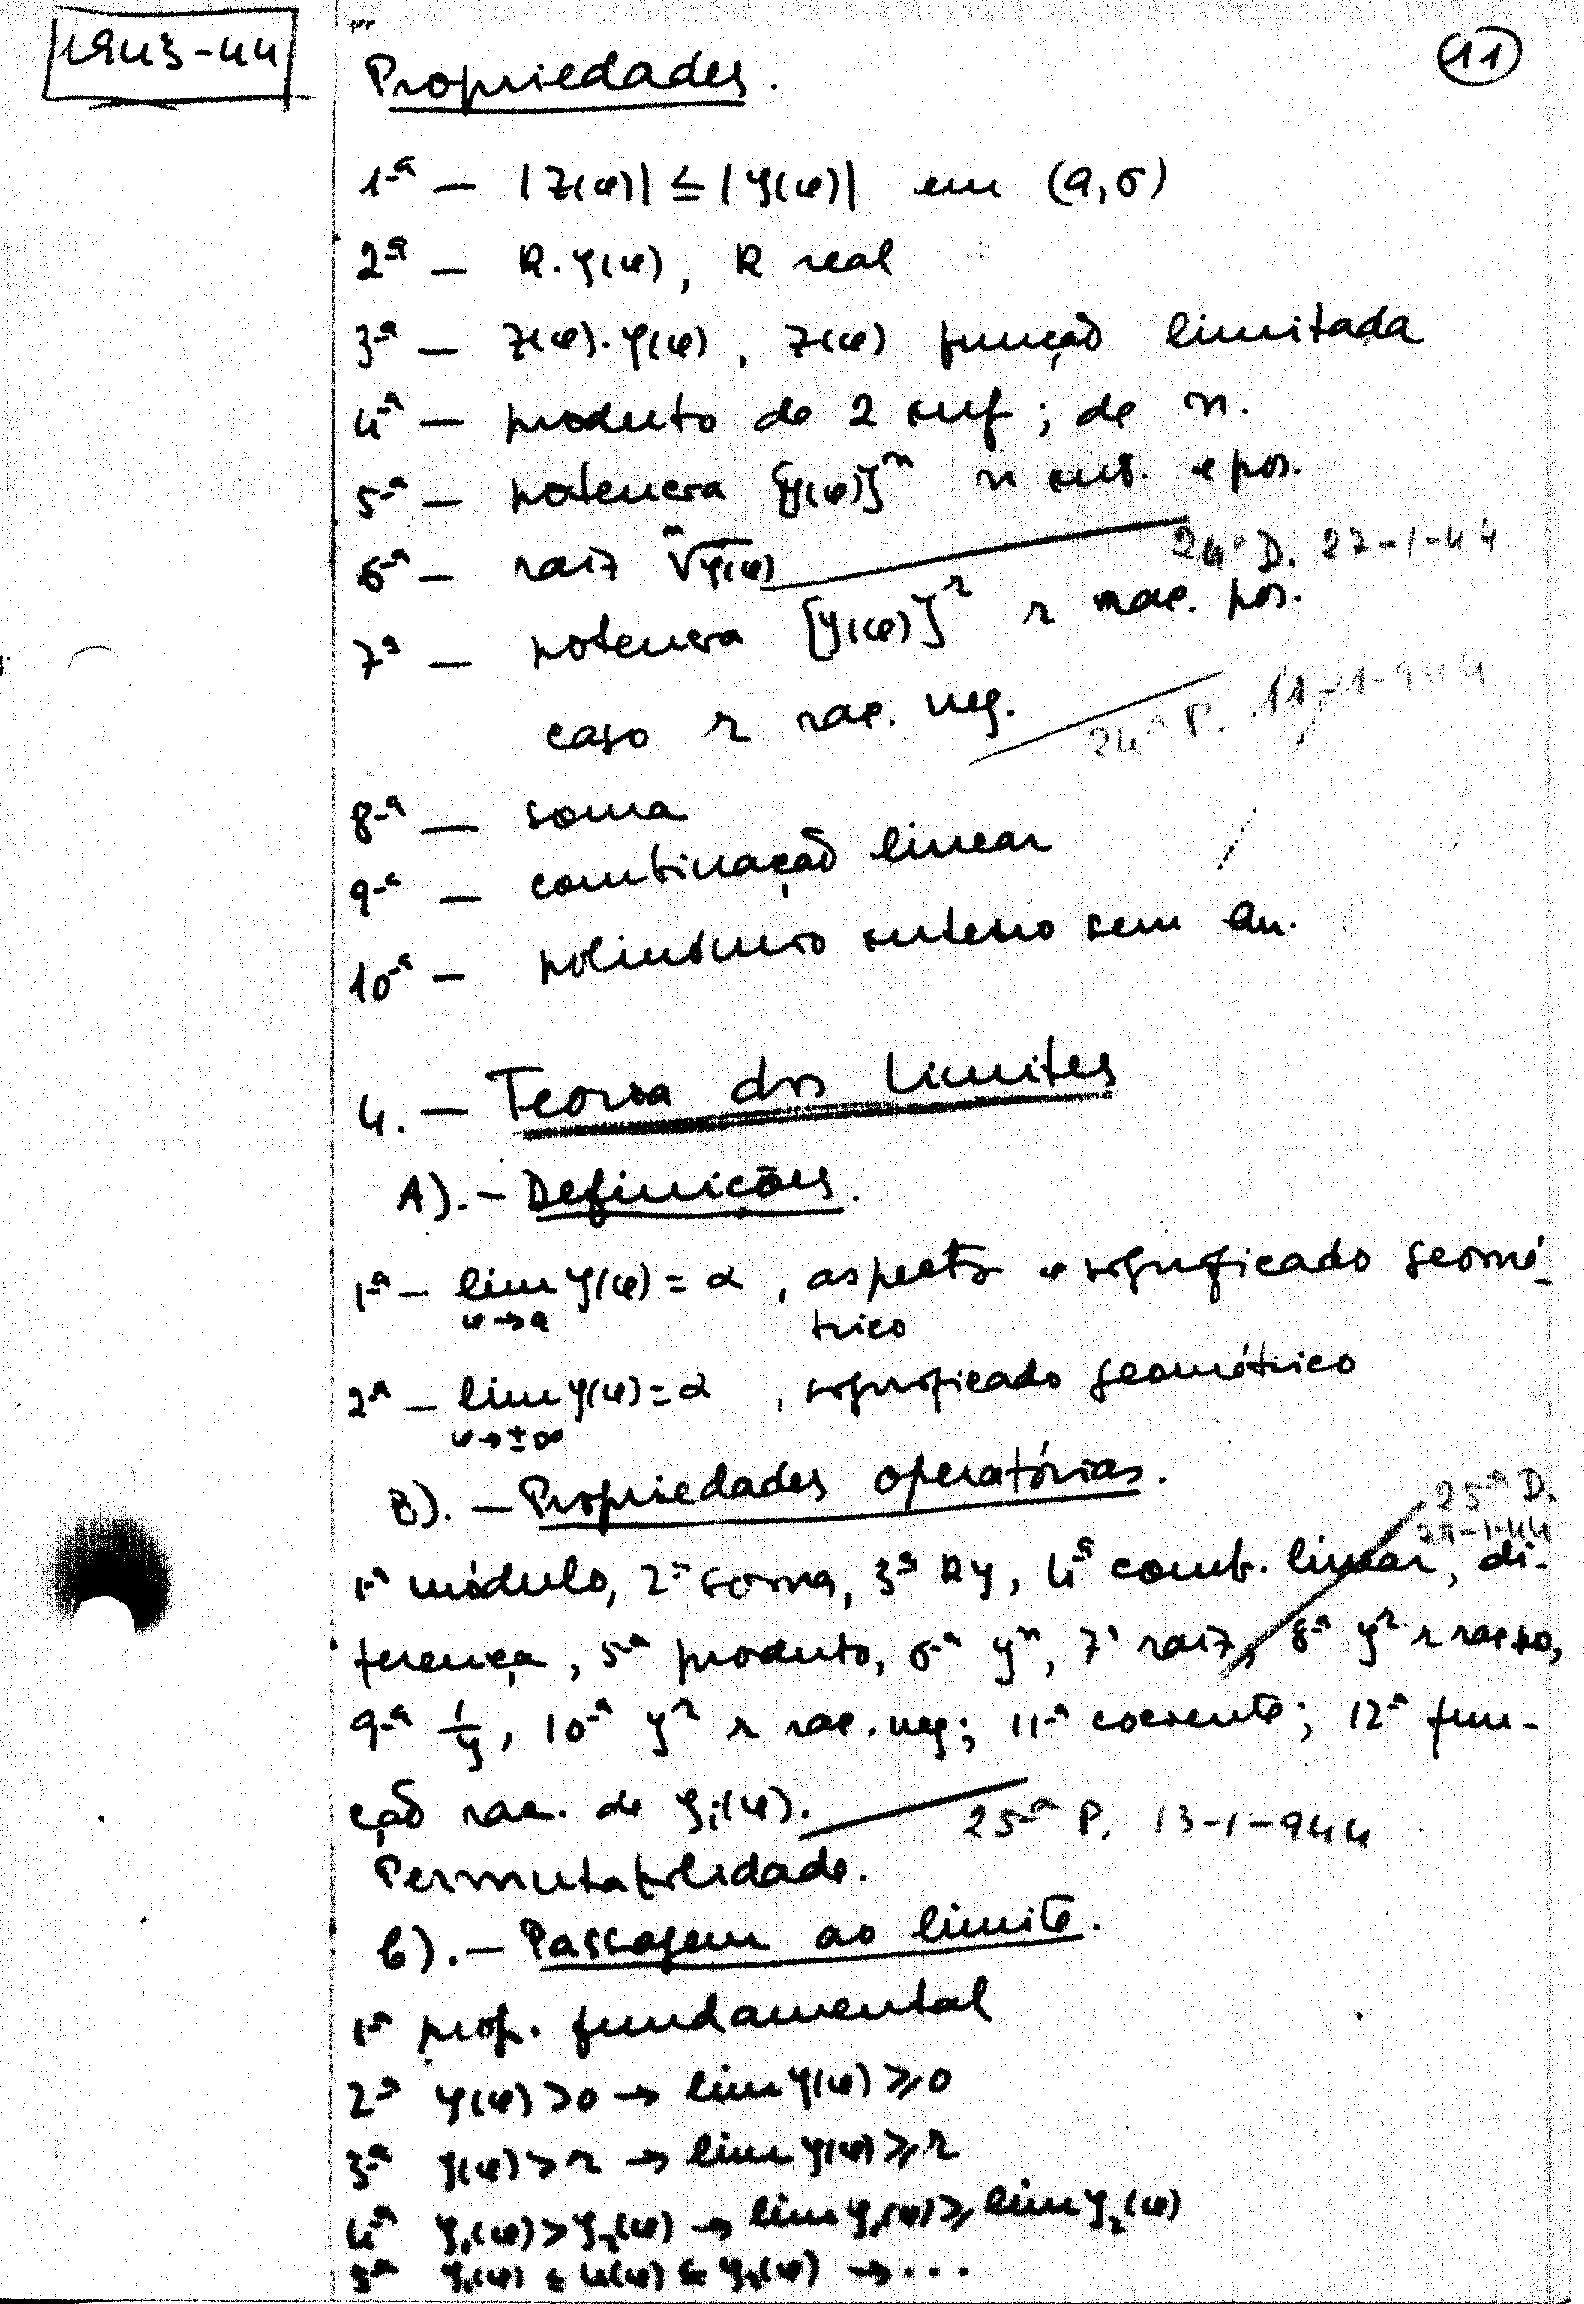 1943-44
11
Propriedades.
1ª — |z(x)| ≤ |y(x)| em (a,σ)
2ª — k.y(x), k real
3ª — z(x).y(x), z(x) função limitada
4ª — produto de 2 inf; de n.
5ª — potencia [y(x)]ⁿ n int. e pos.
6ª — raiz ⁿ√y(x)
24ª D. 27-1-44
7ª — potencia [y(x)]ʳ r rac. pos.
caso r rac. neg.
24ª P. 11-1-944
8ª — soma
9ª — combinação linear
10ª — polinómio inteiro sem
4. — Teoria dos Limites
A). — Definições.
1ª — lim y(x) = α, aspecto e significado geomé-
x→a
trico
2ª — lim y(x) = α, significado geométrico
x→±∞
B). — Propriedades operatórias.
25ª D.
-1-44
1ª módulo, 2ª soma, 3ª ky, 4ª comb. linear, di-
ferença, 5ª produto, 6ª yⁿ, 7ª raiz, 8ª yʳ r rac.
9ª 1/y, 10ª yʳ r rac. neg; 11ª cociente; 12ª fun-
ção rac. de yᵢ(x).
25ª P. 13-1-944
Permutabilidade.
C). — Passagem ao limite.
1ª prop. fundamental
2ª y(x) > 0 → lim y(x) ≥ 0
3ª y(x) > r → lim y(x) ≥ r
4ª y₁(x) > y₂(x) → lim y₁(x) ≥ lim y₂(x)
5ª y₁(x) ≤ u(x) ≤ y₂(x) → ...